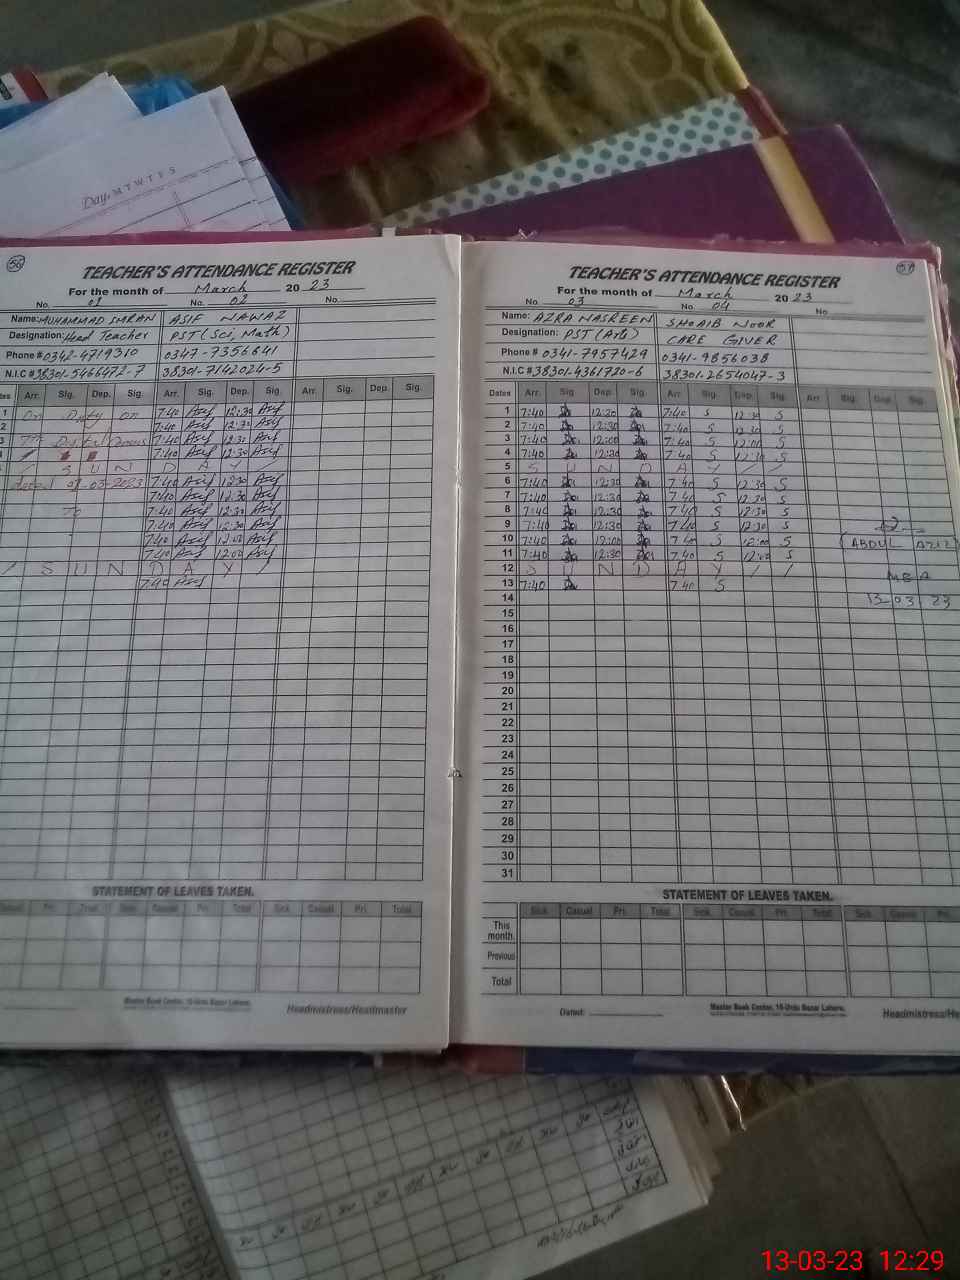 Day: M T W T F S
56
TEACHER'S ATTENDANCE REGISTER
For the month of March 20 23
No. 01 No. 02 No.
Name: MUHAMMAD IMRAN ASIF NAWAZ
Designation: Head Teacher PST (Sci, Math)
Phone # 0342-4719310 0347-7356641
N.I.C # 38301-5466472-7 38301-7142024-5
Arr. Sig. Dep. Sig. Arr. Sig. Dep. Sig. Arr. Sig. Dep. Sig.
1 On Duty on 7:40 Asif 12:30 Asif
2 7:40 Asif 12:30 Asif
3 7th 7:40 Asif 12:30 Asif
4 7:40 Asif 12:30 Asif
/ S U N D A Y /
dated 01-03-2023 7:40 Asif 12:30 Asif
7:40 Asif 12:30 Asif
To 7:40 Asif 12:30 Asif
7:40 Asif 12:30 Asif
7:40 Asif 12:00 Asif
7:40 Asif 12:00 Asif
/ S U N D A Y /
7:40 Asif
STATEMENT OF LEAVES TAKEN.
Casual Pri. Total Sick Casual Pri. Total Sick Casual Pri. Total
Master Book Center, 10-Urdu Bazar Lahore.
Headmistress/Headmaster
57
TEACHER'S ATTENDANCE REGISTER
For the month of March 20 23
No. 03 No. 04 No
Name: AZRA NASREEN SHOAIB NOOR
Designation: PST (Arts) CARE GIVER
Phone # 0341-7957429 0341-9856038
N.I.C # 38301-4361720-6 38301-2654047-3
Dates Arr. Sig. Dep. Sig. Arr. Sig. Dep. Sig. Arr Sig. Dep Sig.
1 7:40 12:30 7:40 S 12:30 S
2 7:40 12:30 7:40 S 12:30 S
3 7:40 12:00 7:40 S 12:00 S
4 7:40 12:30 7:40 S 12:30 S
5 S U N D A Y / /
6 7:40 12:30 7:40 S 12:30 S
7 7:40 12:30 7:40 S 12:30 S
8 7:40 12:30 7:40 S 12:30 S
9 7:40 12:30 7:40 S 12:30 S
10 7:40 12:00 7:40 S 12:00 S
11 7:40 12:30 7:40 S 12:00 S
12 S U N D A Y / /
13 7:40 7:40 S
14
15
16
17
18
19
20
21
22
23
24
25
26
27
28
29
30
31
(ABDUL AZIZ)
MEA
13-03-23
STATEMENT OF LEAVES TAKEN.
Sick Casual Pri. Total Sick Casual Pri. Total Sick Casual Pri.
This month.
Previous
Total
Dated:
Master Book Center, 10-Urdu Bazar Lahore.
Headmistress/He
13-03-23 12:29